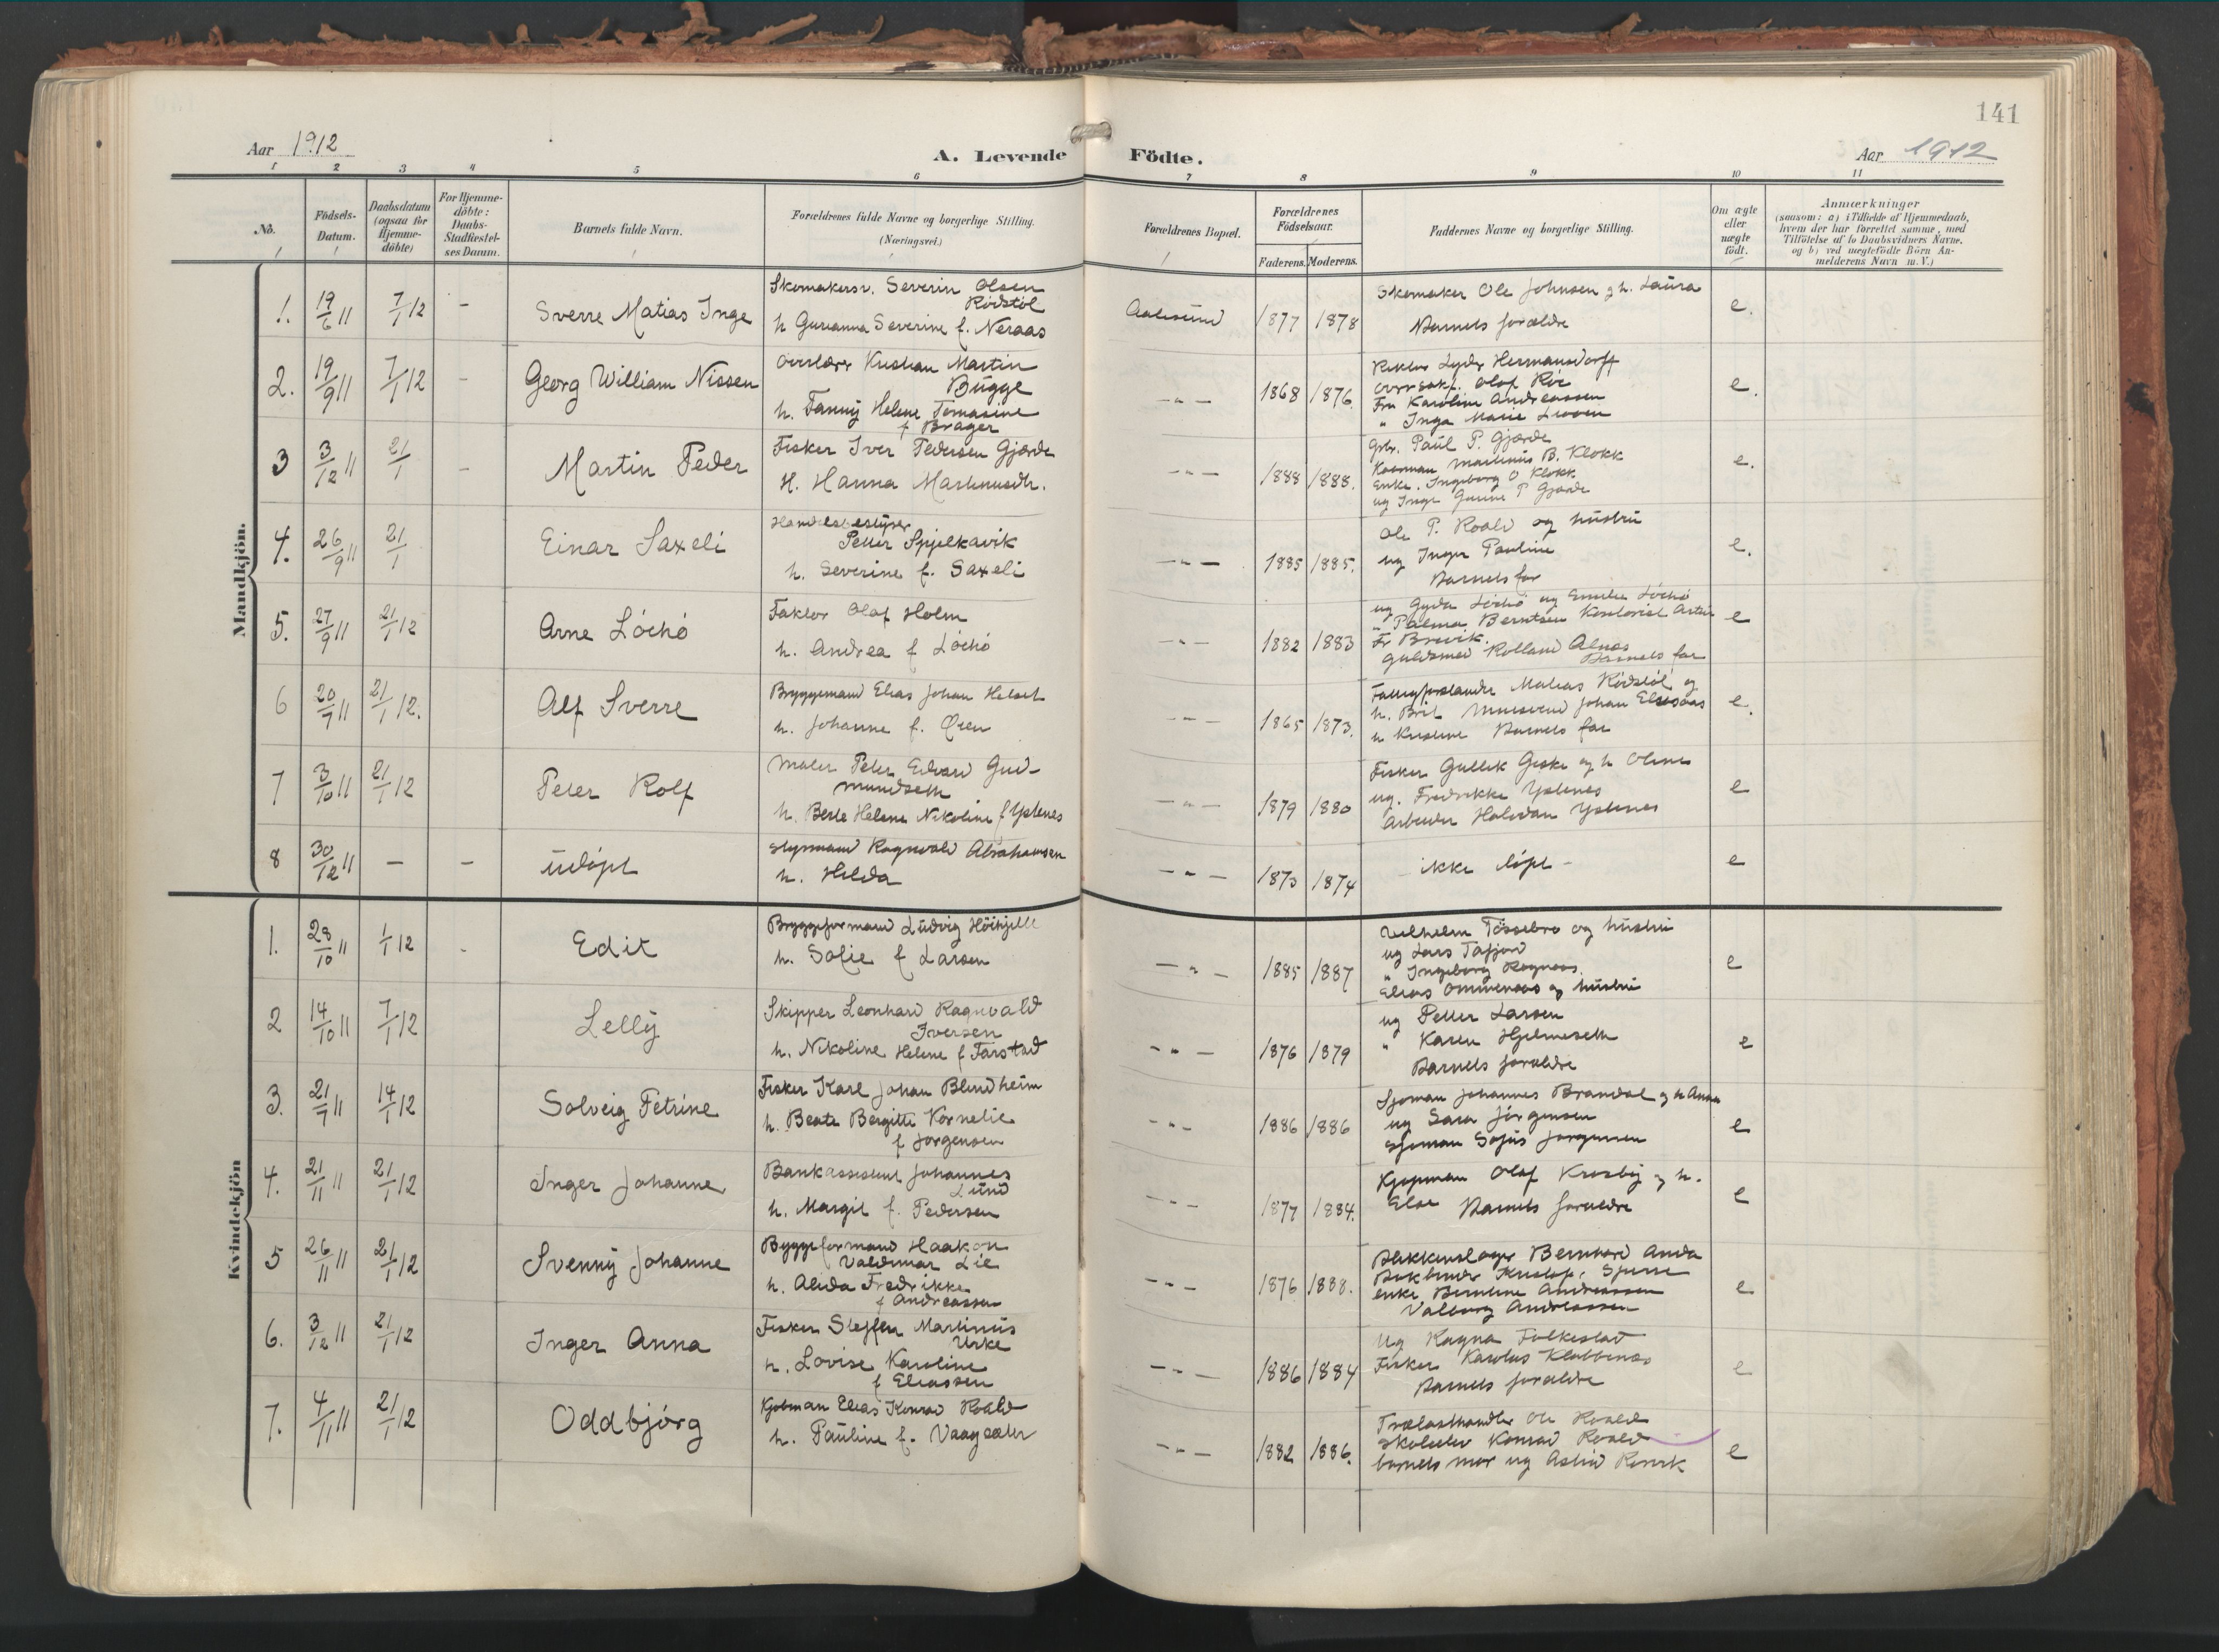 141
Aar 1912
A. Levende Födte.
Aar 1912
1 2 3 4 5 6 7 8 9 10 11
No.
Födsels-Datum.
Daabsdatum (ogsaa for Hjemme-döbte)
For Hjemme-döbte: Daabs-Stadfæstel-ses Datum.
Barnets fulde Navn.
Forældrenes fulde Navne og borgerlige Stilling. (Næringsvei.)
Forældrenes Bopæl.
Forældrenes Födselsaar.
Faderens. Moderens.
Faddernes Navne og borgerlige Stilling.
Om ægte eller uægte födt.
Anmærkninger
(saasom: a) i Tilfælde af Hjemmedaab, hvem der har forrettet samme, med Tilföielse af to Daabsvidners Navne. og b) ved uægtefödte Börn An-melderens Navn m. V.)
Mandkjön.
1. 19/6 11 7/1 12 - Sverre Matias Inge
Skomakersv. Severin Olsen
Rödstöl
h Gurianna Severine f. Neraas
Aalesund 1877 1878
Skomaker Ole Johnsen og h. Laura
Barnets forældre
e.
2. 19/9 11 7/1 12 - Georg William Nissen
Overlærer Kristian Martin
Bugge
h. Fanny Helene Tomasine
f Brager
- " - 1868 1876.
Rektor Lyder Hermansdorff
Overrsakf. Olaf Röe
Fru Karoline Andreassen
" Inga Marie
e.
3 3/12 11 21/1 - Martin Peder
Fisker Iver Pedersen Gjærde
H. Hanna Martinusdtr.
- " - 1888 1888.
Gbr. Paul P. Gjærde
Martinus B. Klokk
Enke. Ingeborg O Klokk
ug Inge P Gjærde
e.
4. 26/9 11 21/1 Einar Saxeli
Handelsbestyrer
Petter Spjelkavik
h. Severine f. Saxeli
- " - 1885 1885.
Ole P. Roald og hustru
ug Inger Pauline
Barnets far
e.
5. 27/9 11 21/1 12 Arne Löchö
Faktor Olaf Holm
h. Andrea f Löchö
- " - 1882 1883
ug Gyda Löchö og Emilie Löchö
" Palma Berntsen Kontorist Artur
Fr Brevik.
Guldsmed Rolland Alnæs
Barnets far
e
6 20/7 11 21/1 12. Alf Sverre
Bryggemand Elias Johan Helset
h. Johanne f. Øien
- " - 1865 1873.
Fattigforstander Matias Rödstöl og
h. Brit Murersvend Johan
h Kristine Barnets far
e.
7 3/10 11 21/1 12 Peter Rolf
Maler Peter Edvard Gud-
mundseth
h. Berte Helene Nikoline f Ystenes
- " - 1879 1880
Fisker Gullik Giske og h Oline
ug. Fredrikke Ystenes
Arbeider Halvdan Ystenes
e
8 30/12 11 - - udöpt
Styrmand Ragnvald Abrahamsen
h. Hilda
- " - 1873 1874
ikke döpt -
e
Kvindekjön
1. 28/10 11 1/1 12 - Edit
Bryggeformand Ludvig Höihjelle
h. Sofie f Larsen
- " - 1885 1887
Vilhelm Tössebro og hustru
ug Lars Tafjord
" Ingeborg Rognaas.
Elias Ommenaas og hustru
e
2 14/10 11 7/1 12 Lelly
Skipper Leonhard Ragnvald
Iversen
h. Nikoline Helene f Farstad
- " - 1876 1879
ug Petter Larsen
" Karen Hjelmeseth
Barnets forældre
e
3. 21/7 11 14/1 12 Solveig Petrine
Fisker Karl Johan Blindheim
h. Beate Bergitte Kornelie
f Jørgensen
- " - 1886 1886
Sjøman Johannes Brandal og h Anna
ug Sara Jörgensen
Sjøman Sofus Jørgensen
e
4. 21/11 11 21/1 12 Inger Johanne
Bankassistent Johannes
Lund
h. Margit f. Pedersen
- " - 1877 1884.
Kjøpman Olaf Krosby og h.
Else Barnets forældre
e
5 26/11 11 21/1 12 Svenny Johanne
Byggeformand Haakon
Valdemar Lie
h. Alida Fredrikke
f Andreassen
- " - 1876 1888.
Blikkenslager Bernhard Anda
Bokbinder Kristof.
enke Berntine Andreassen
Valborg Andreassen
e
6. 3/12 11 21/1 12 Inger Anna
Fisker Steffen Martinus
Urke
h. Lovise Karoline
f Eliassen
- " - 1886 1884
Ug Ragna Folkestad
Fisker Karolus Klubbenes
Barnets forældre
e
7. 4/11 11 21/1 12 Oddbjörg
Kjøbman Elias Konrad Roald
h. Pauline f. Vaagsæter
- " - 1882 1886.
Trælasthandler Ole Roald
Skoleelev Konrad Roald
barnets mor ug Astrid
e